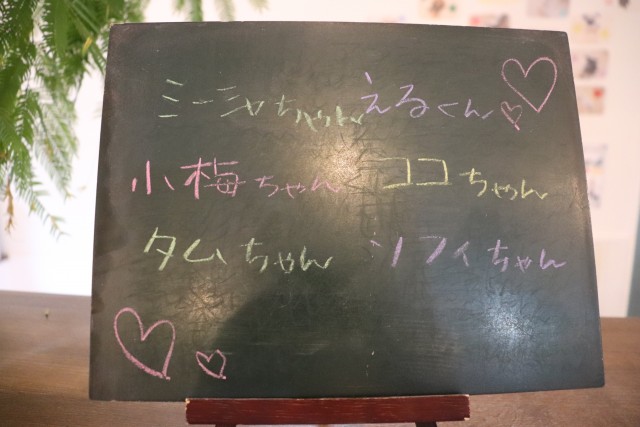 ミーシャちゃん えるくん
小梅ちゃん ココちゃん
タムちゃん ソフィちゃん